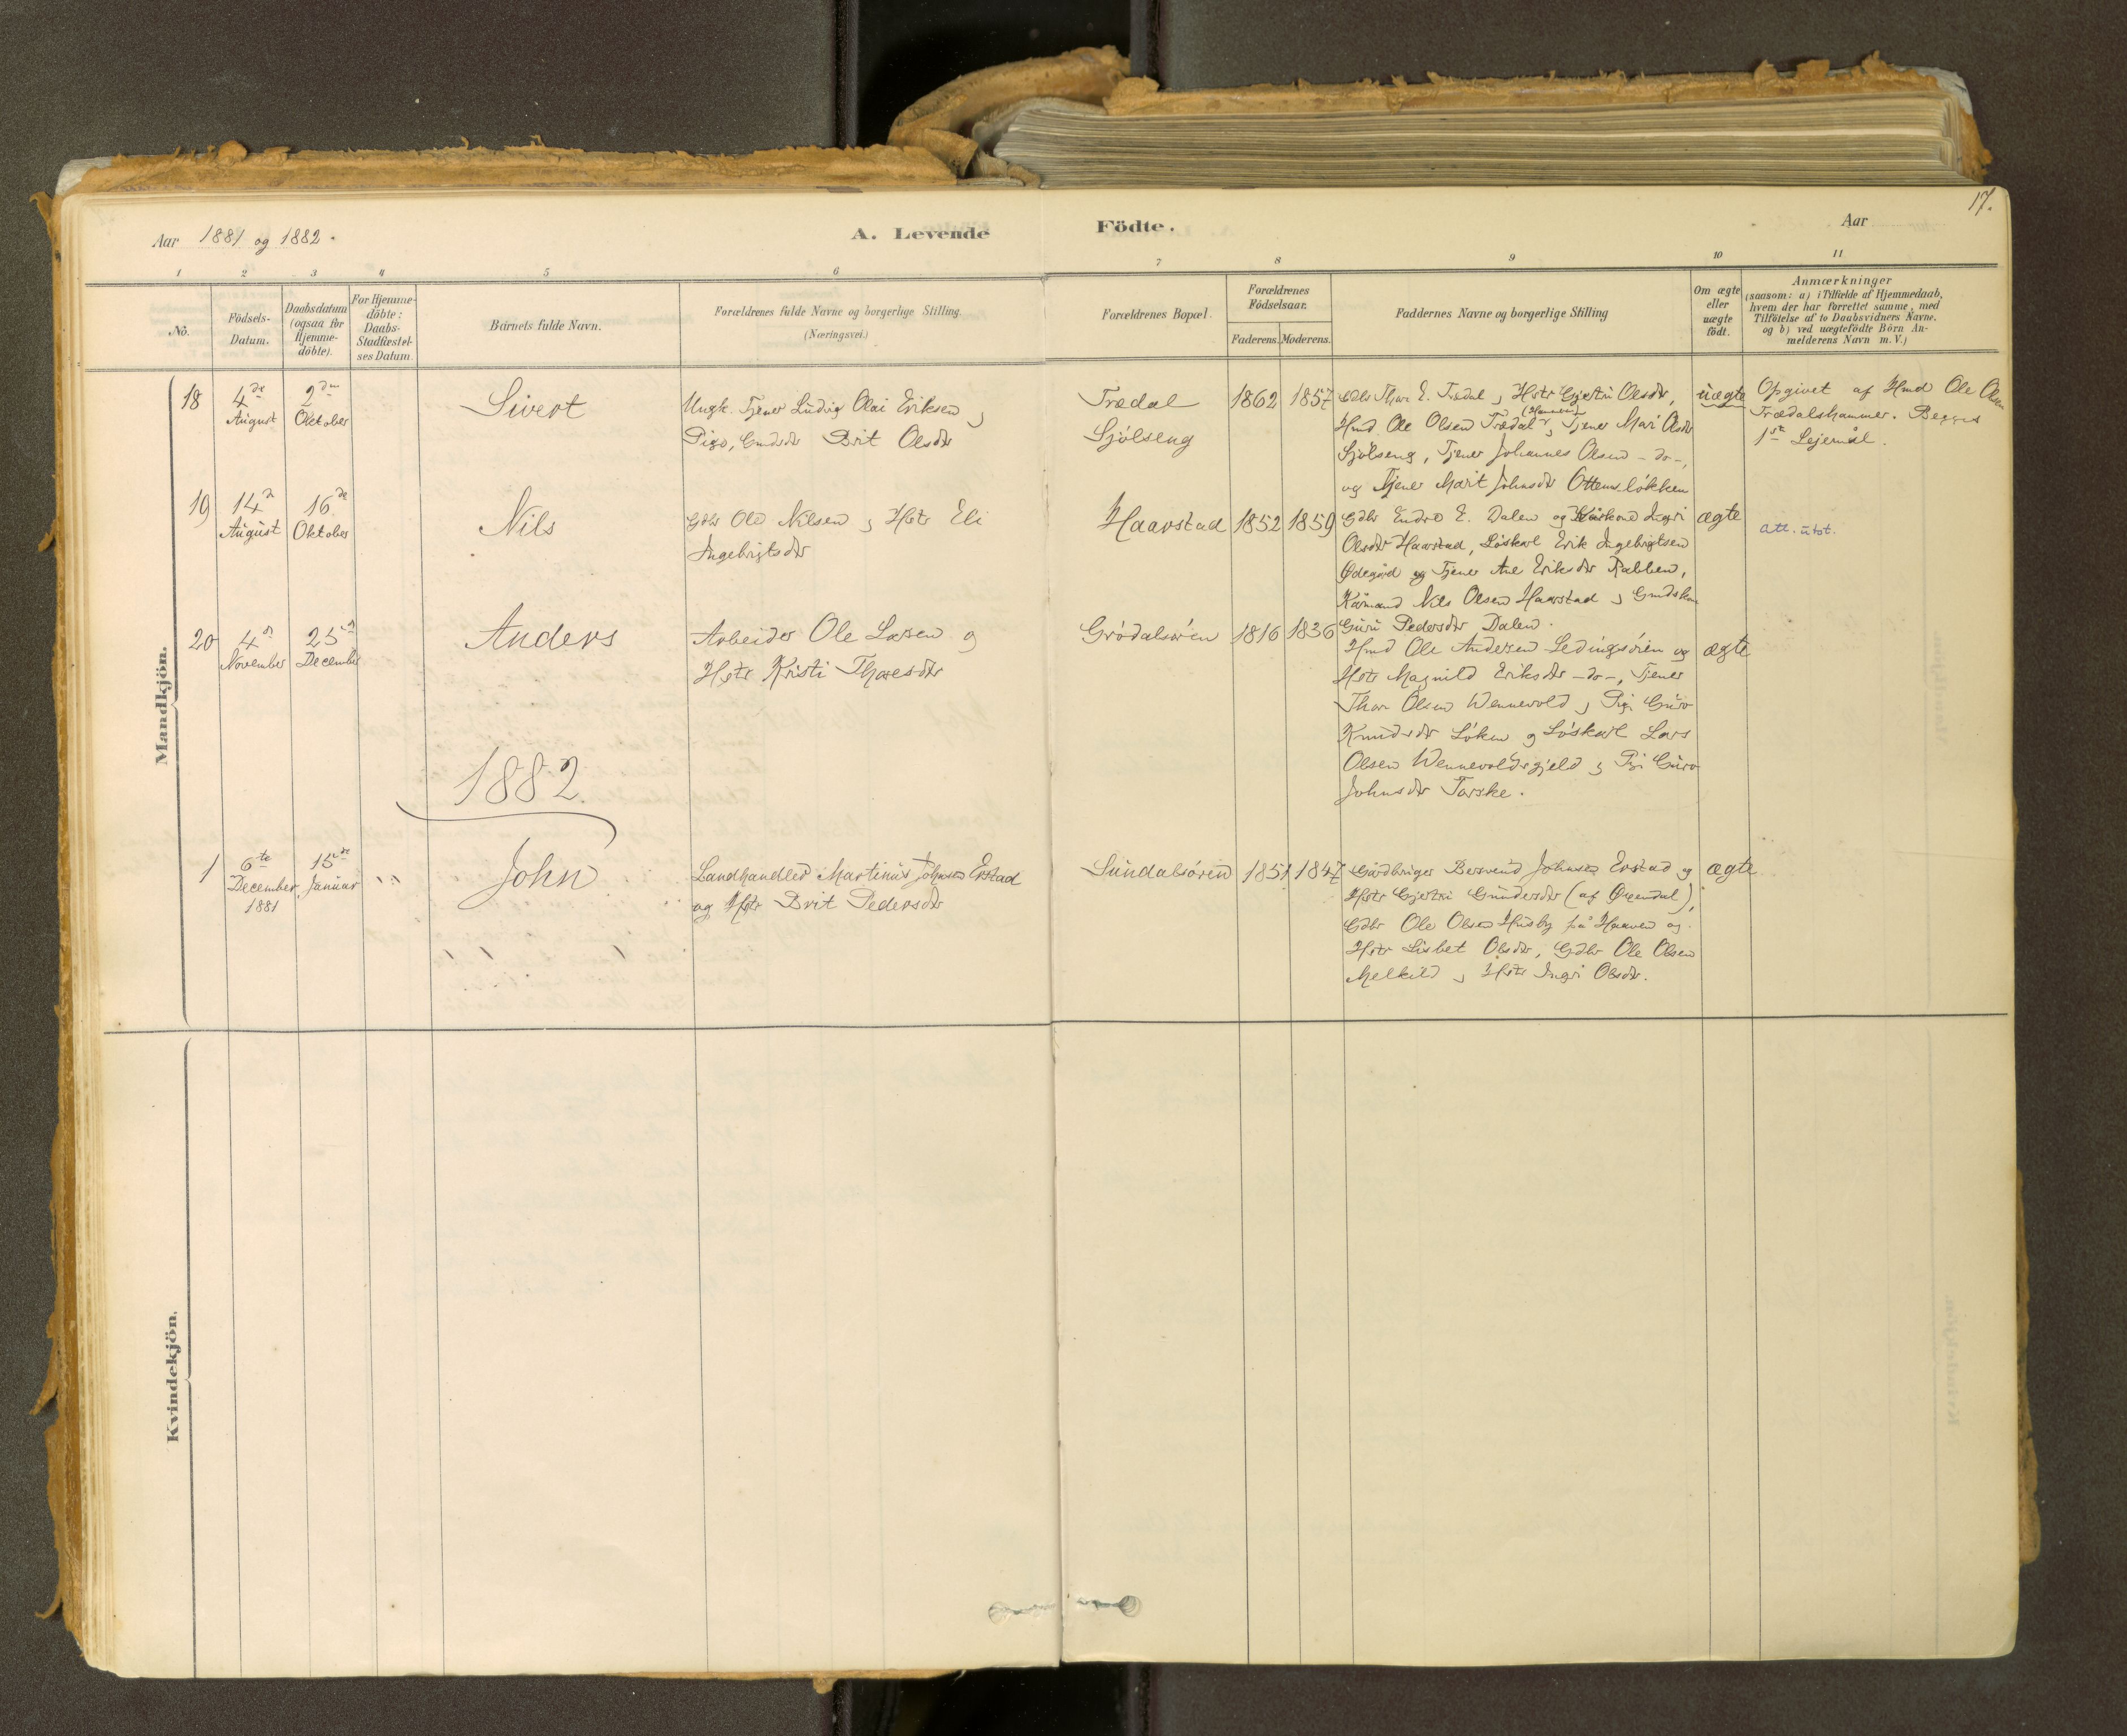 17.
Aar 1881 og 1882.
A. Levende Födte.
Aar
1 2 3 4 5 6 7 8 9 10 11
Nò.
Födsels-
Datum.
Daabsdatum
(ogsaa for
Hjemme-
döbte).
For Hjemme-
döbte:
Daabs-
Stadfæstel-
ses Datum.
Barnets fulde Navn.
Forældrenes fulde Navne og borgerlige Stilling.
(Næringsvei.)
Forældrenes Bopæl.
Forældrenes
Födselsaar.
Faderens. Moderens.
Faddernes Navne og borgerlige Stilling
Om ægte
eller
uægte
födt.
Anmærkninger
(saasom: a) i Tilfælde af Hjemmedaab,
hvem der har forrettet samme, med
Tilföielse af to Daabsvidners Navne,
og b) ved uægtefödte Börn An-
melderens Navn m. V.)
Mandkjön.
18
4de
August
2den
Oktober
Sivert
Ungk. Tjener Ludvig Olai Eriksen g
Pige, Gmdsdr Brit Olsdr
Trædal
Sjölseng
1862 1857
Gdbr Thore E. Trædal g Hstr Gjertru Olsdr,
Hmd. Ole Olsen Trædal (Hammer) g Tjener Mari Olsdr
Sjölseng, Tjener Johannes Olsen -do-,
og Tjener Marit Johnsdr Ottemslökken
uægte
Opgivet af Hmd Ole Olsen
Trædalshammer. Begges
1ste Lejermål.
19
14de
August
16de
Oktober
Nils
Gdbr Ole Nilsen g Hstr Eli
Ingebrigtsdr
Haarstad
1852 1859
Gdbr Endre E. Dalen og Kårkone Ingri
Olsdr Haarstad, Löskarl Erik Ingebrigtsen
Ødegård og Tjener Ane Eriksdr Rabben,
Kårmand Nils Olsen Haarstad g Gmdskone
Guru Pedersdr Dalen.
ægte
att. utst.
20
4de
November
25de
December
Anders
Arbeider Ole Larsen g
Hstr Kristi Thoresdr
Grödalsören
1816 1836
Hmd Ole Andersen Ledingsöien og
Hstr Magnild Eriksdr -do-, Tjener
Thore Olsen Wennevold g Pige Guro
Knudsdr Löken g Löskarl Lars
Olsen Wennevoldsgjeld g Pige Guro
Johnsdr Torske.
ægte
1882.
1
6te
December
1881
15de
Januar
John
Landhandler Martinus Johnsen Erstad
og Hstr Brit Pedersdr
Sundalsören
1851 1847
Gårdbruger Bersvend Johnsen Erstad og
Hstr Gjertru Gundersdr (af Øxendal),
Gdbr Ole Olsen Husby på Haaven og
Hstr Lisbet Olsdr, Gdbr Ole Olsen
Melkild g Hstr Ingri Olsdr.
ægte
Kvindekjön.